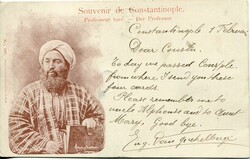 Souvenir de Constantinople.
Professeur turc. — Der Professor.
Constantinople 5 Février
Dear Cousin.
To day we passed Constple
from where I send you these
four cards.
Please remember me to
uncle Alphonse and to Aunt
Mary. Good bye.
Eug. Van